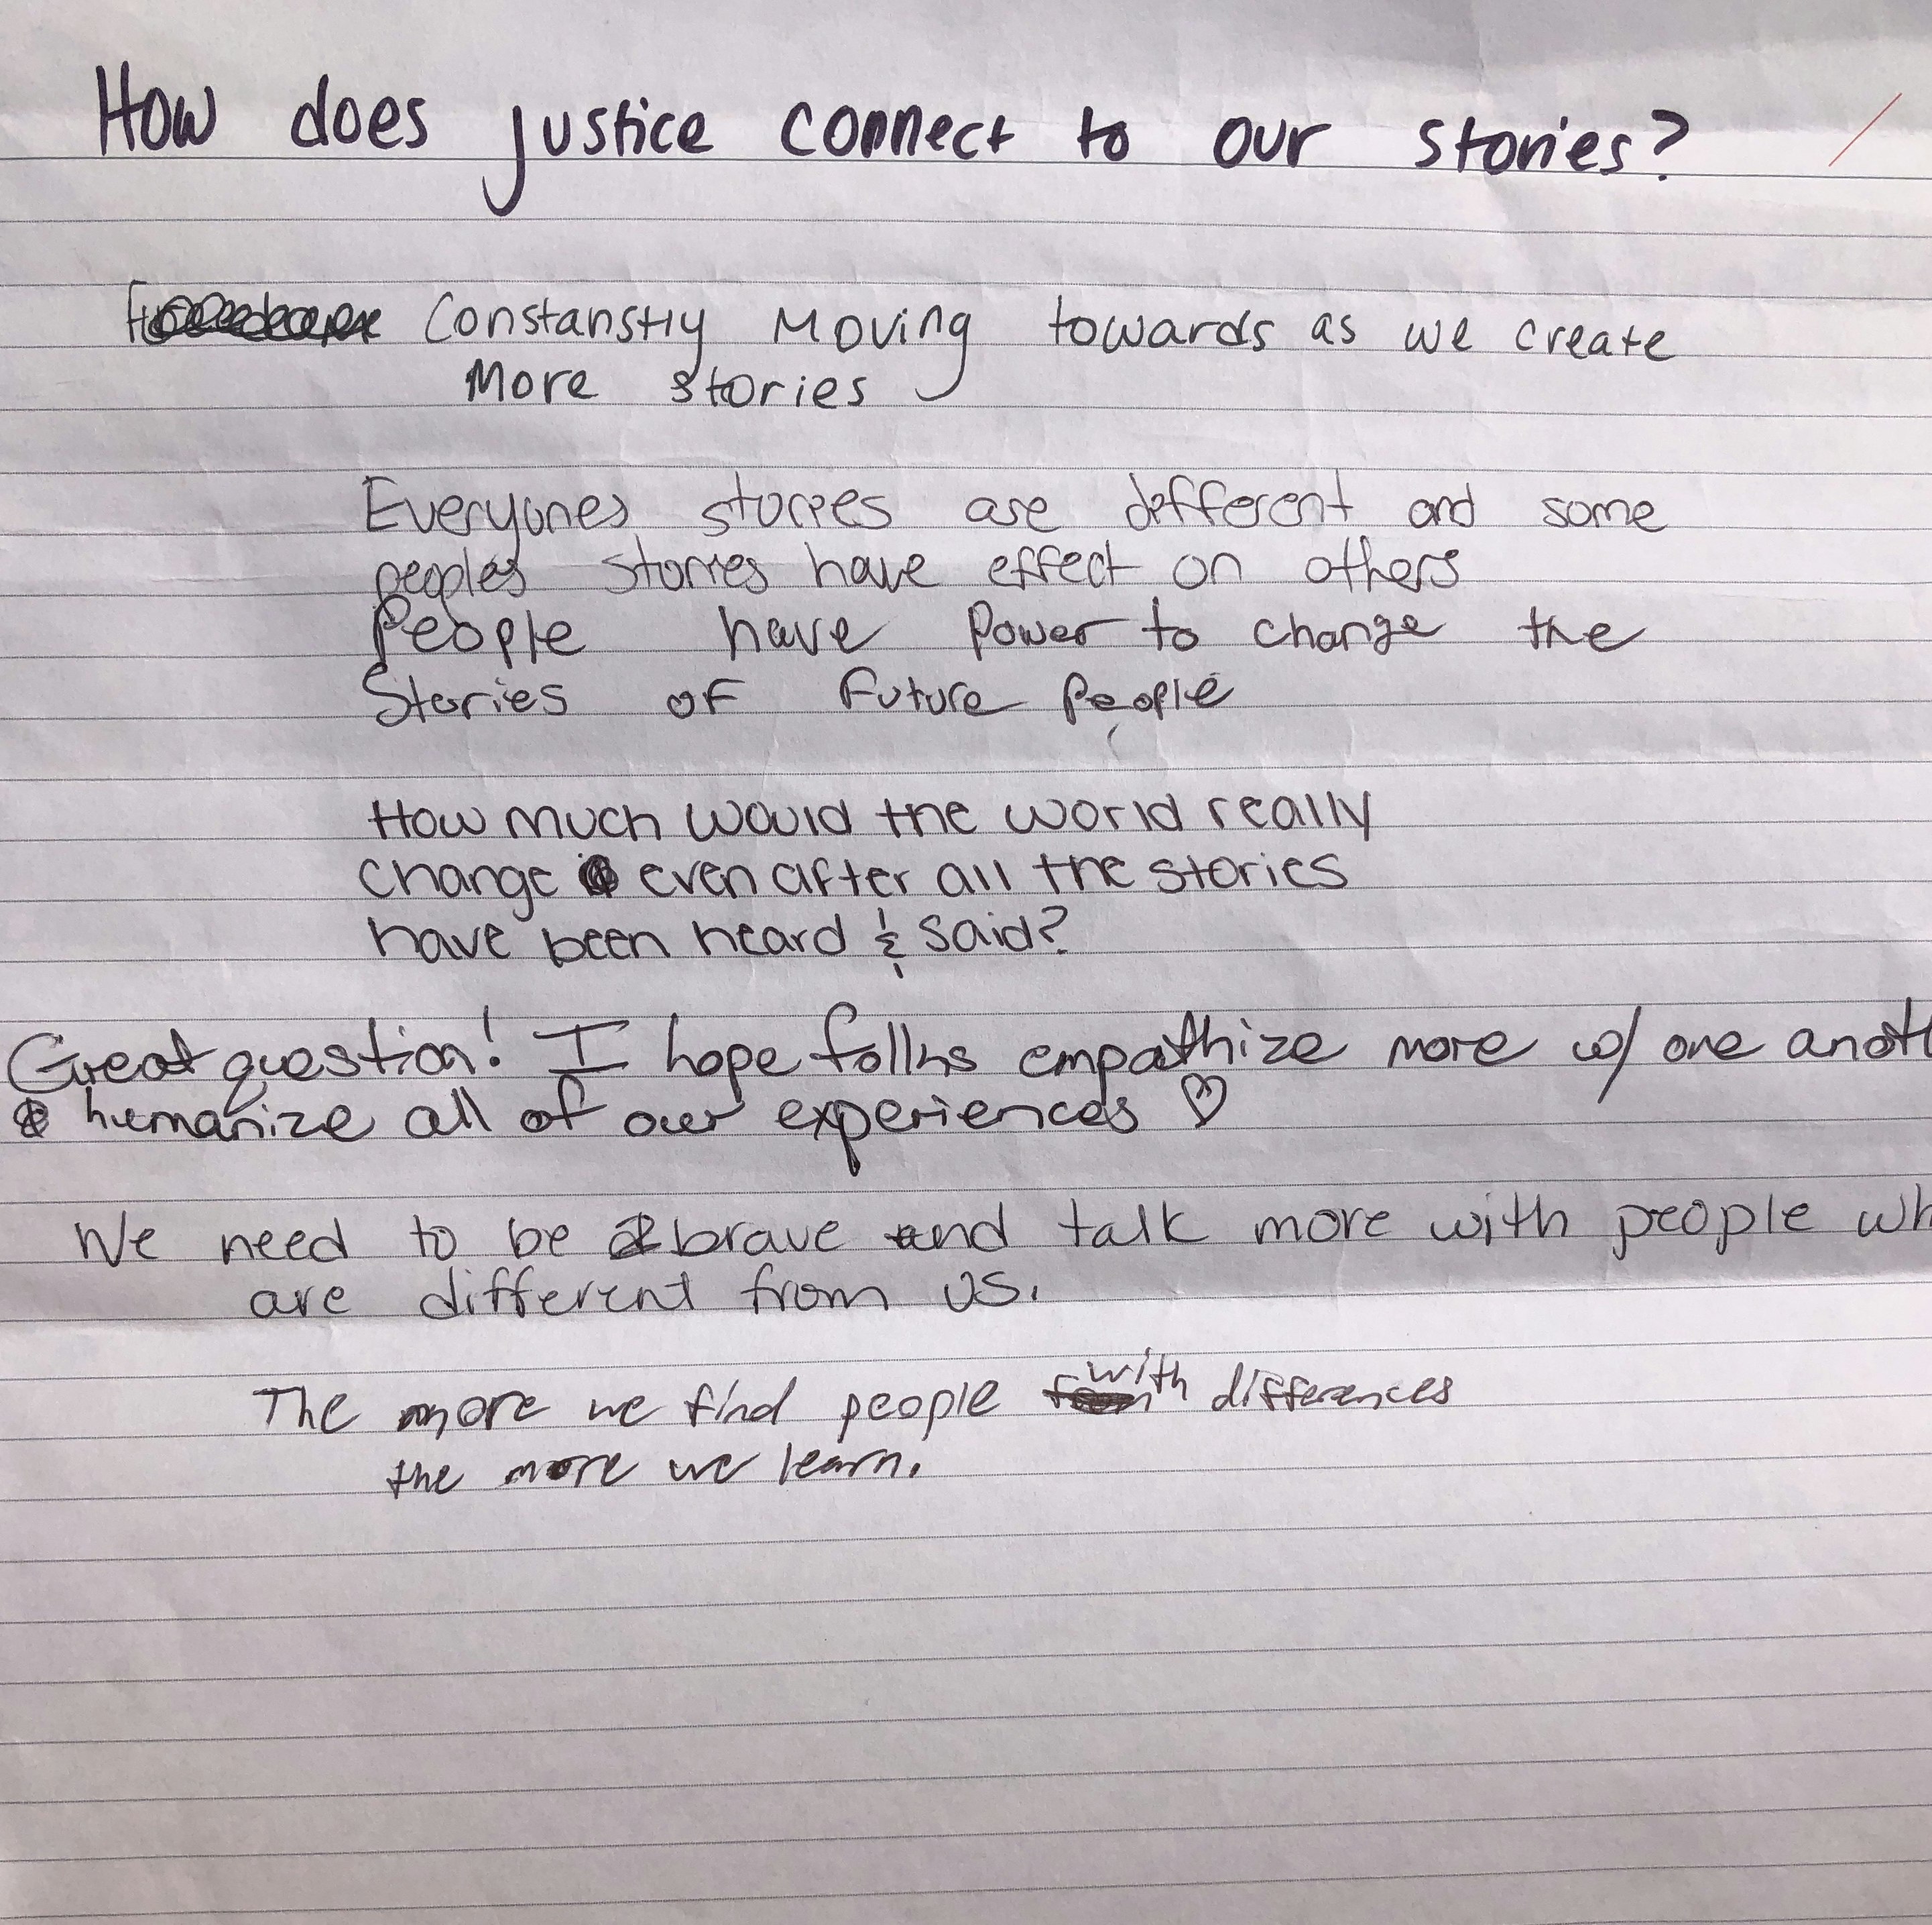 How does justice connect to our stories?
Constanstly Moving towards as we create
More stories
Everyones stories are different and some
peoples stories have effect on others
People have Power to change the
Stories of Future People
How much would the world really
change even after all the stories
have been heard & said?
Great question! I hope folks empathize more w/ one anoth
& humanize all of our experiences ♡
We need to be brave and talk more with people wh
are different from us.
The more we find people with differences
the more we learn.